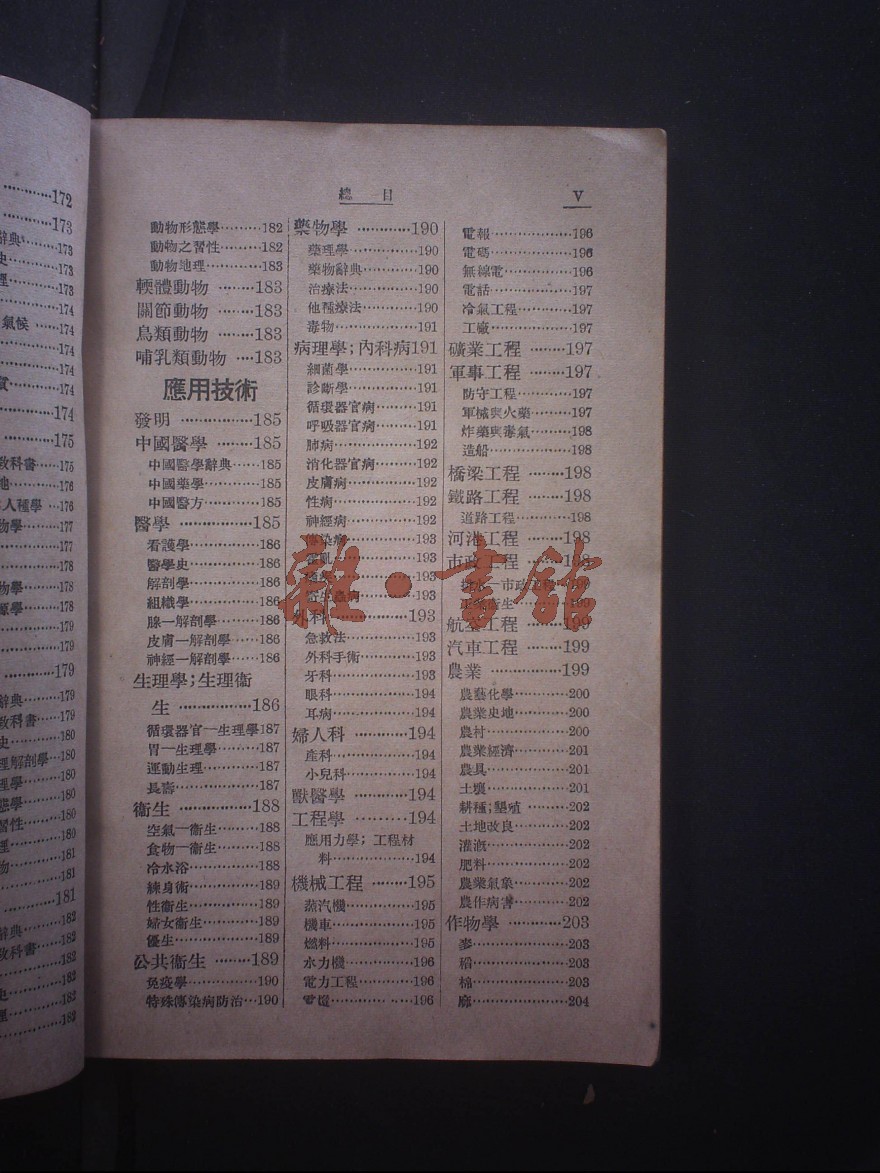 172
173
辭典 173
史 173
理 173
174
氣候 174
174
174
174
174
175
教科書 175
地 176
人種學 176
物學 177
177
178
物學 178
源學 178
179
179
179
辭典 179
教科書 179
史 180
理解剖學 180
理學 180
態學 180
習性 180
理 181
物 181
181
181
辭典 182
教科書 182
182
史 182
理 182
183
總 目 V
動物形態學 182
動物之習性 182
動物地理 183
輭體動物 183
關節動物 183
鳥類動物 183
哺乳類動物 183
應用技術
發明 185
中國醫學 185
中國醫學辭典 185
中國藥學 185
中國醫方 185
醫學 185
看護學 186
醫學史 186
解剖學 186
組織學 186
腺—解剖學 186
皮膚—解剖學 186
神經—解剖學 186
生理學;生理衛
生 186
循環器官—生理學187
胃—生理學 187
運動生理 187
長壽 187
衛生 188
空氣—衛生 188
食物—衛生 188
冷水浴 188
練身術 189
性衛生 189
婦女衛生 189
優生 189
公共衛生 189
免疫學 190
特殊傳染病防治 190
藥物學 190
藥理學 190
藥物辭典 190
治療法 190
他種療法 190
毒物 191
病理學;內科病191
細菌學 191
診斷學 191
循環器官病 191
呼吸器官病 191
肺病 192
消化器官病 192
皮膚病 192
性病 192
神經病 192
傳染病 193
霍亂 193
193
寄生蟲病 193
外科 193
急救法 193
外科手術 193
牙科 193
眼科 194
耳病 194
婦人科 194
產科 194
小兒科 194
獸醫學 194
工程學 194
應用力學; 工程材
料 194
機械工程 195
蒸汽機 195
機車 195
燃料 195
水力機 196
電力工程 196
電燈 196
電報 196
電碼 196
無線電 196
電話 197
冷氣工程 197
工廠 197
礦業工程 197
軍事工程 197
防守工程 197
軍械與火藥 197
炸藥與毒氣 198
造船 198
橋梁工程 198
鐵路工程 198
道路工程 198
河港工程 198
市政工程 198
排水—市政工程 199
衛生 199
航空工程 199
汽車工程 199
農業 199
農藝化學 200
農業史地 200
農村 200
農業經濟 201
農具 201
土壤 201
耕種;墾殖 202
土地改良 202
灌溉 202
肥料 202
農業氣象 202
農作病害 202
作物學 203
麥 203
稻 203
棉 203
204
雜·書館